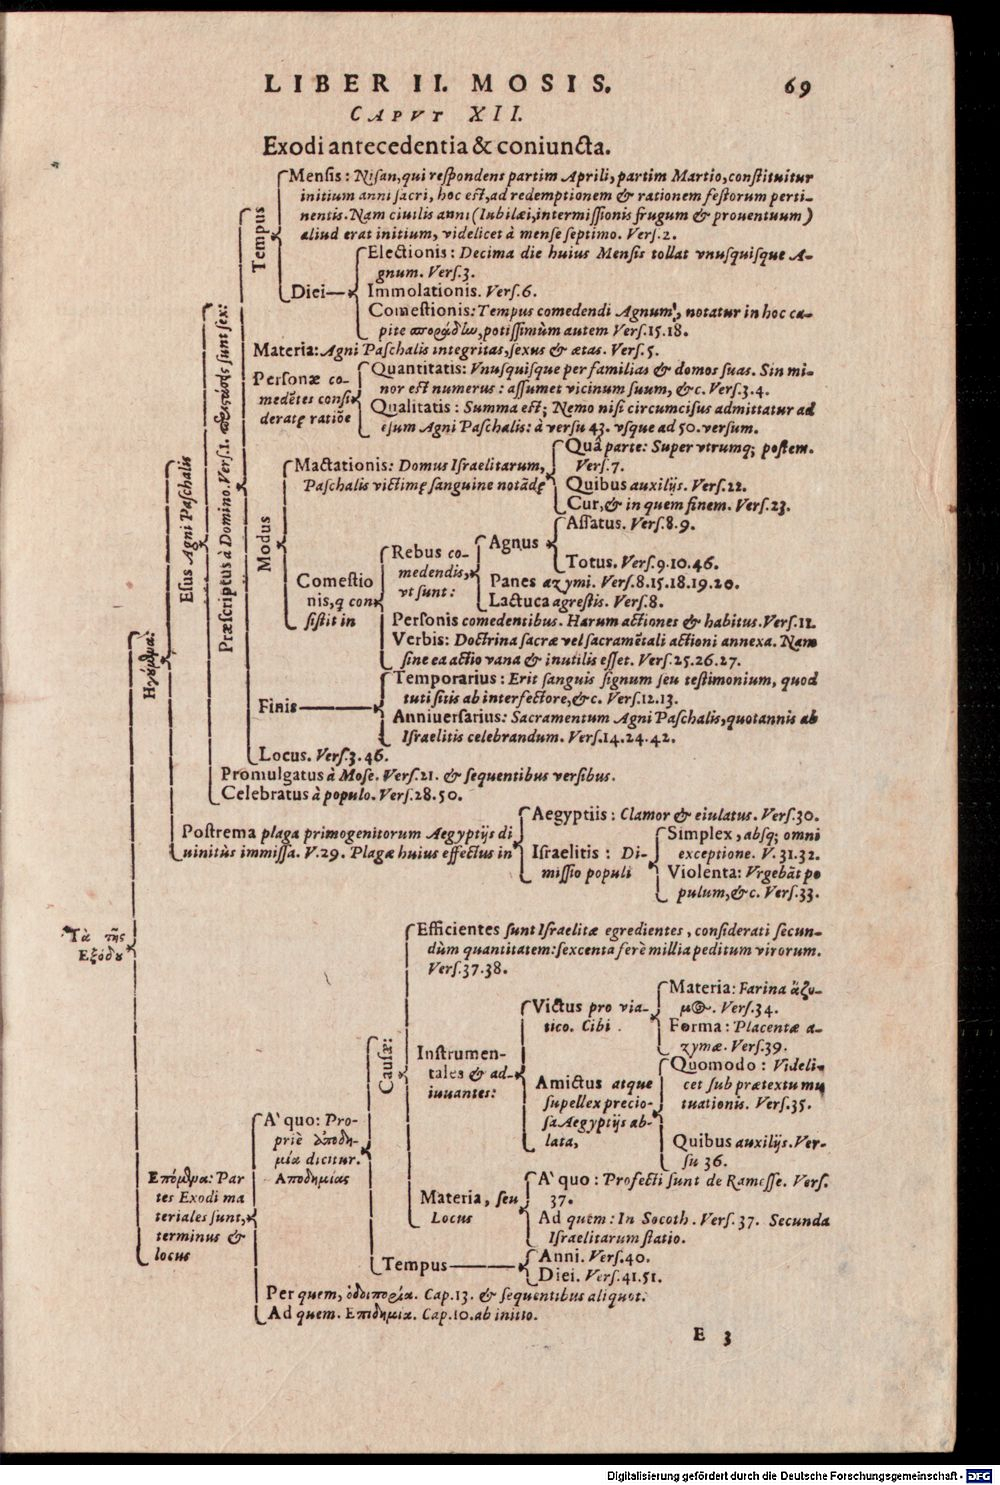 LIBER II. MOSIS. 69
CAPVT XII.
Exodi antecedentia & coniuncta.
Mensis: Nisan, qui respondens partim Aprili, partim Martio, constituitur
initium anni sacri, hoc est, ad redemptionem & rationem festorum perti-
nentis. Nam ciuilis anni (Iubilæi, intermissionis frugum & prouentuum)
aliud erat initium, videlicet à mense septimo. Vers.2.
Tempus
Electionis: Decima die huius Mensis tollat vnusquisque A-
gnum. Vers.3.
Diei
Immolationis. Vers.6.
Comestionis: Tempus comedendi Agnum, notatur in hoc ca-
pite potissimùm autem Vers.15.18.
Materia: Agni Paschalis integritas, sexus & ætas. Vers.5.
Personæ co-
medẽtes consi
deratę ratiõe
Quantitatis: Vnusquisque per familias & domos suas. Sin mi-
nor est numerus: assumet vicinum suum, &c. Vers.3.4.
Qualitatis: Summa est; Nemo nisi circumcisus admittatur ad
esum Agni Paschalis: à versu 43. vsque ad 50. versum.
Præscriptus à Domino. Vers.1. sunt sex:
Esus Agni Paschalis
Modus
Mactationis: Domus Israelitarum,
Paschalis victimę sanguine notãdę
Quâ parte: Super vtrumq; postem.
Vers.7.
Quibus auxilijs. Vers.22.
Cur, & in quem finem. Vers.23.
Comestio
nis, q con
sistit in
Rebus co-
medendis,
vt sunt:
Agnus
Assatus. Vers.8.9.
Totus. Vers.9.10.46.
Panes azymi. Vers.8.15.18.19.20.
Lactuca agrestis. Vers.8.
Personis comedentibus. Harum actiones & habitus. Vers.11.
Verbis: Doctrina sacræ vel sacramẽtali actioni annexa. Nam
sine ea actio vana & inutilis esset. Vers.25.26.27.
Finis
Temporarius: Erit sanguis signum seu testimonium, quod
tuti sitis ab interfectore, &c. Vers.12.13.
Anniuersarius: Sacramentum Agni Paschalis, quotannis ab
Israelitis celebrandum. Vers.14.24.42.
Locus. Vers.3.46.
Promulgatus à Mose. Vers.21. & sequentibus versibus.
Celebratus à populo. Vers.28.50.
Ηγούμϸα:
Postrema plaga primogenitorum Aegyptijs di
uinitùs immissa. V.29. Plagæ huius effectus in
Aegyptiis: Clamor & eiulatus. Vers.30.
Israelitis: Di-
missio populi
Simplex, absq; omni
exceptione. V.31.32.
Violenta: Vrgebãt po
pulum, &c. Vers.33.
Τὰ τῆς
Εξόδου
Efficientes sunt Israelitæ egredientes, considerati secun-
dùm quantitatem: sexcenta ferè millia peditum virorum.
Vers.37.38.
Causæ:
Instrumen-
tales & ad-
iuuantes:
Victus pro via-
tico. Cibi.
Materia: Farina ἄζυ-
μος. Vers.34.
Forma: Placentæ a-
zymæ. Vers.39.
Amictus atque
supellex precio-
sa Aegyptijs ab-
lata,
Quomodo: Videli-
cet sub prætextu mu
tuationis. Vers.35.
Quibus auxilijs. Ver-
su 36.
Επόμϸα: Par
tes Exodi ma
teriales sunt,
terminus &
locus
A' quo: Pro-
priè ἀποδη-
μία dicitur.
Αποδημίας
Materia, seu
Locus
A' quo: Profecti sunt de Ramesse. Vers.
37.
Ad quem: In Socoth. Vers.37. Secunda
Israelitarum statio.
Tempus
Anni. Vers.40.
Diei. Vers.41.51.
Per quem, ὁδοιπορία. Cap.13. & sequentibus aliquot.
Ad quem. Επιδημία. Cap.10. ab initio.
E 3
Digitalisierung gefördert durch die Deutsche Forschungsgemeinschaft - DFG